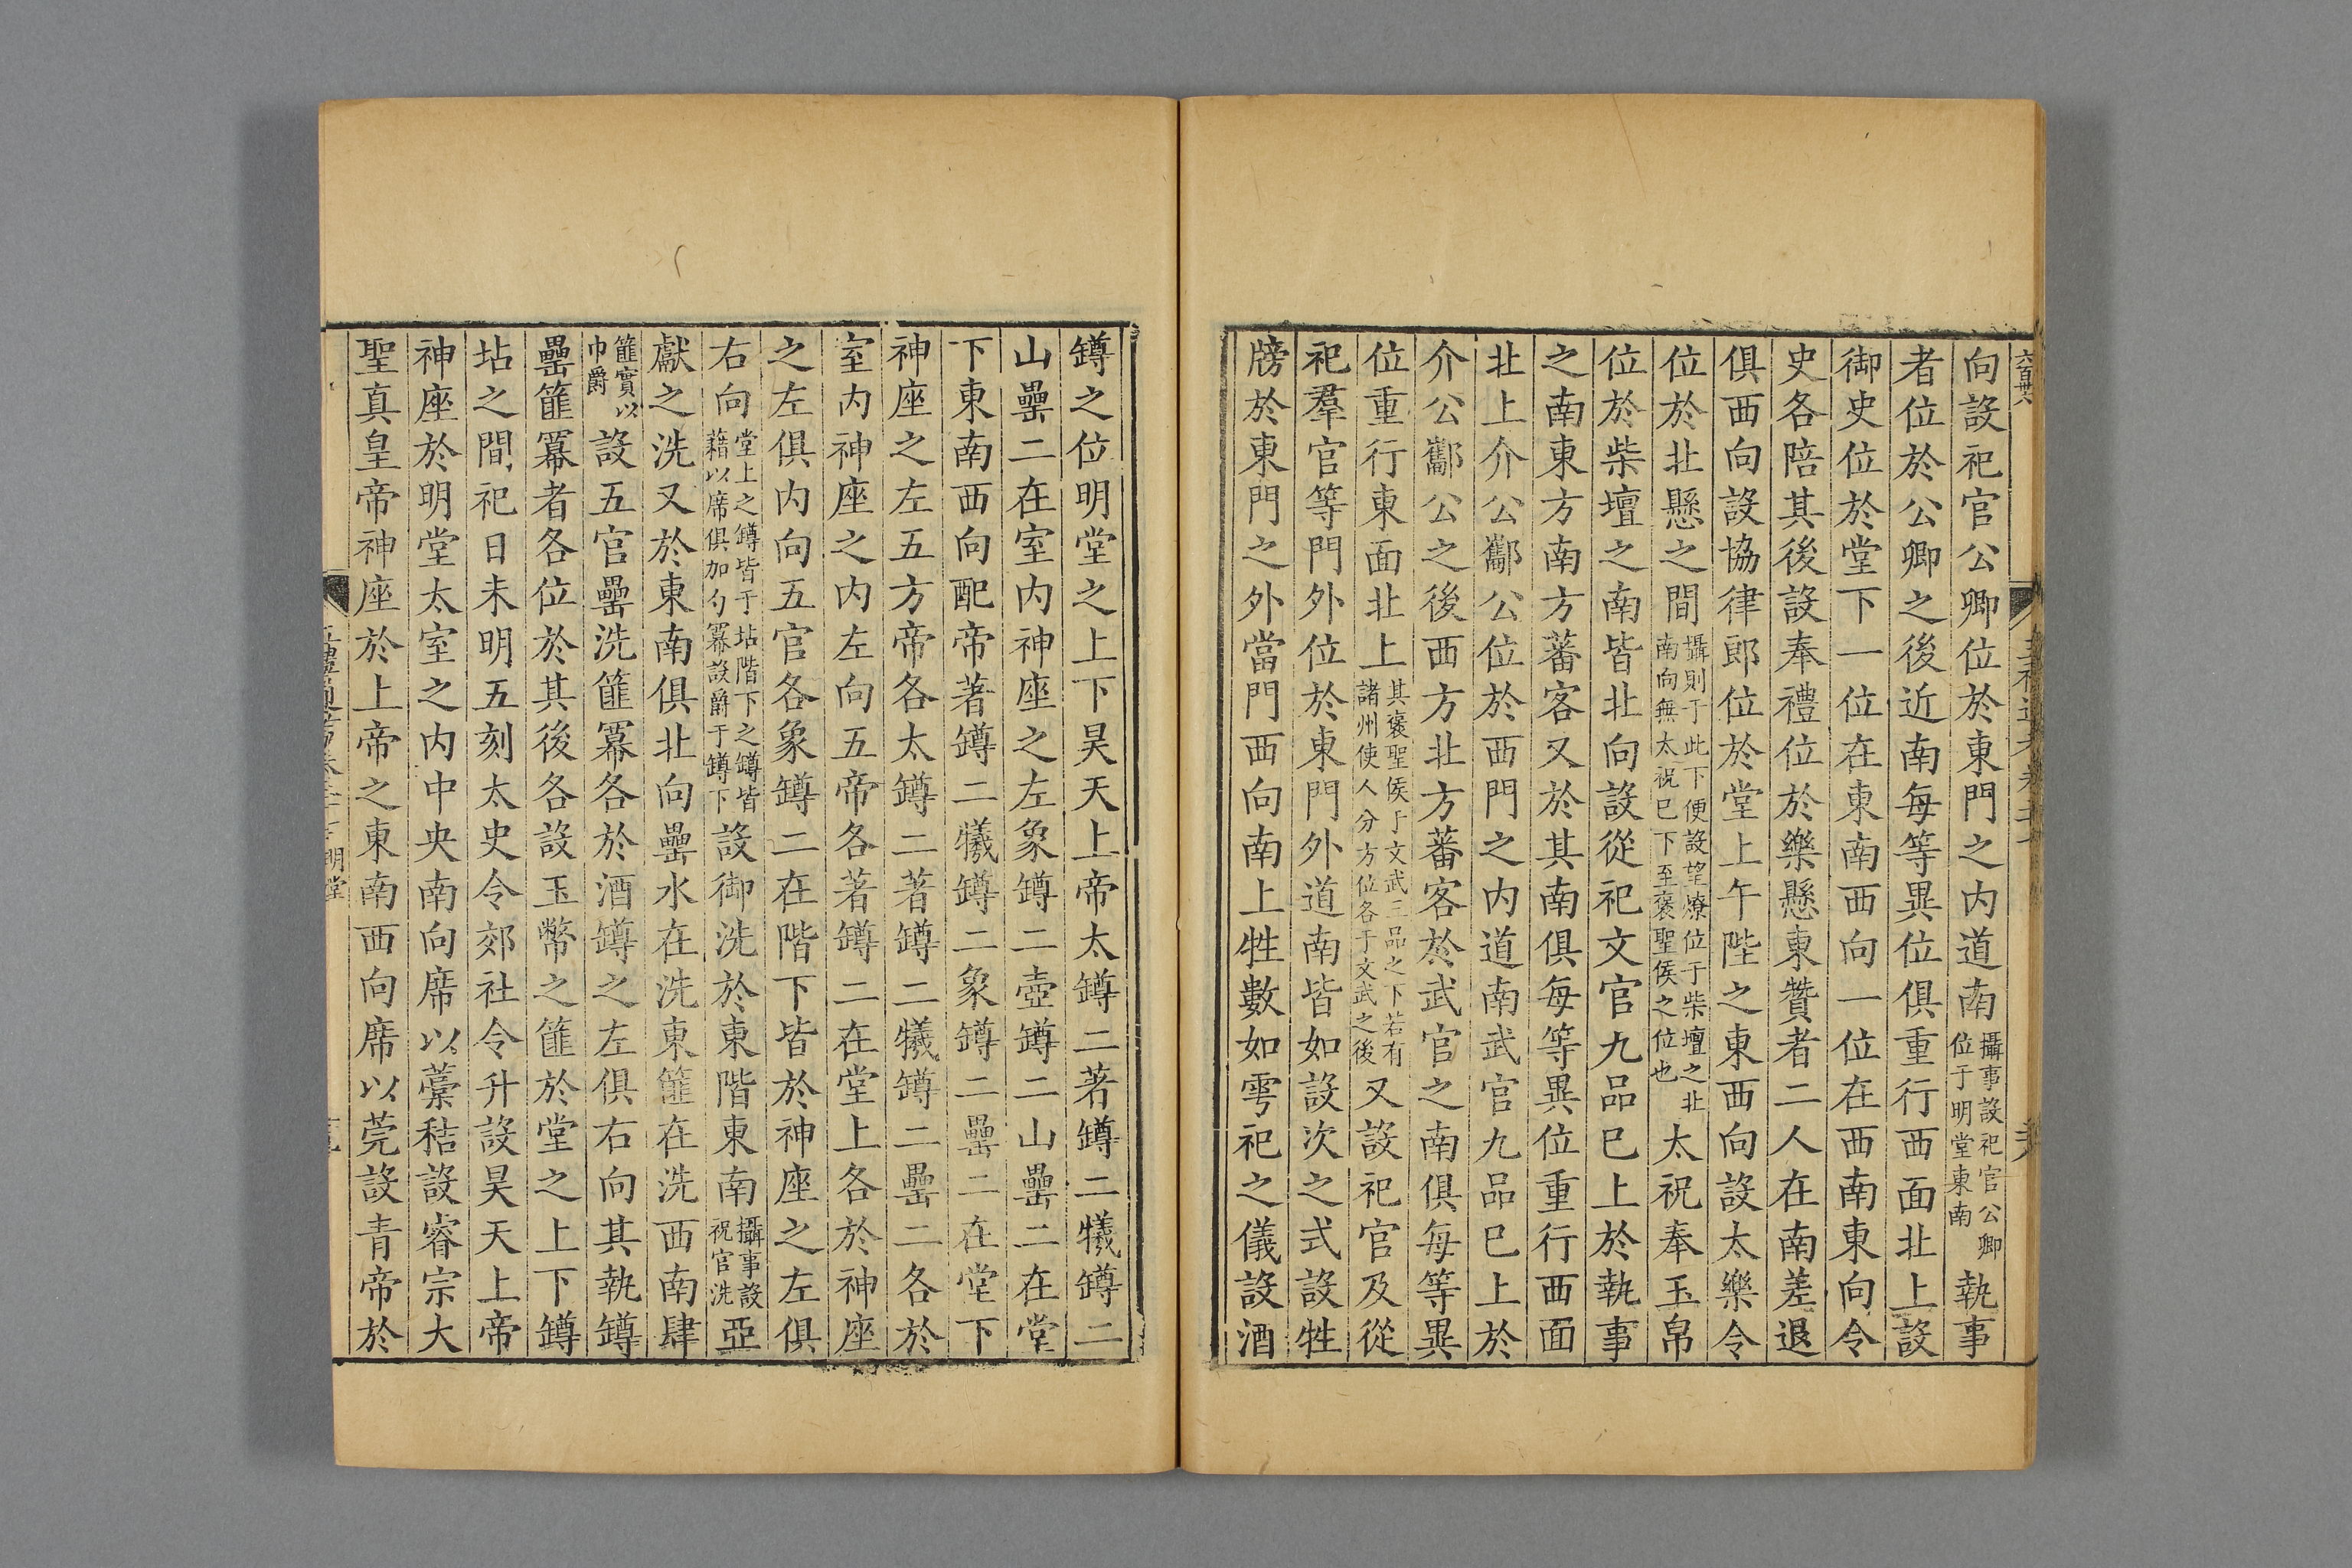 向設祀官公卿位於東門之内道南攝事設祀官公卿位于明堂東南執事
者位於公卿之後近南每等異位俱重行西面北上設
御史位於堂下一位在東南西向一位在西南東向令
史各陪其後設奉禮位於樂懸東贊者二人在南差退
俱西向設協律郎位於堂上午陛之東西向設太樂令
位於北懸之間攝則于此下便設望燎位于柴壇之北南向無太祝已下至褒聖侯之位也太祝奉玉帛
位於柴壇之南皆北向設從祀文官九品已上於執事
之南東方南方蕃客又於其南俱每等異位重行西面
北上介公酅公位於西門之内道南武官九品已上於
介公酅公之後西方北方蕃客於武官之南俱每等異
位重行東面北上其褒聖侯于文武三品之下若有諸州使人分方位各于文武之後又設祀官及從
祀羣官等門外位於東門外道南皆如設次之式設牲
牓於東門之外當門西向南上牲數如雩祀之儀設酒
罇之位明堂之上下昊天上帝太罇二著罇二犧罇二
山罍二在室内神座之左象罇二壺罇二山罍二在堂
下東南西向配帝著罇二犧罇二象罇二罍二在堂下
神座之左五方帝各太罇二著罇二犧罇二罍二各於
室内神座之内左向五帝各著罇二在堂上各於神座
之左俱内向五官各象罇二在階下皆於神座之左俱
右向堂上之罇皆于坫階下之罇皆藉以席俱加勺冪設爵于罇下設御洗於東階東南攝事設祝官洗亞
獻之洗又於東南俱北向罍水在洗東篚在洗西南肆
篚實以巾爵設五官罍洗篚冪各於酒罇之左俱右向其執罇
罍篚冪者各位於其後各設玉幣之篚於堂之上下罇
坫之間祀日未明五刻太史令郊社令升設昊天上帝
神座於明堂太室之内中央南向席以藁秸設睿宗大
聖真皇帝神座於上帝之東南西向席以莞設青帝於